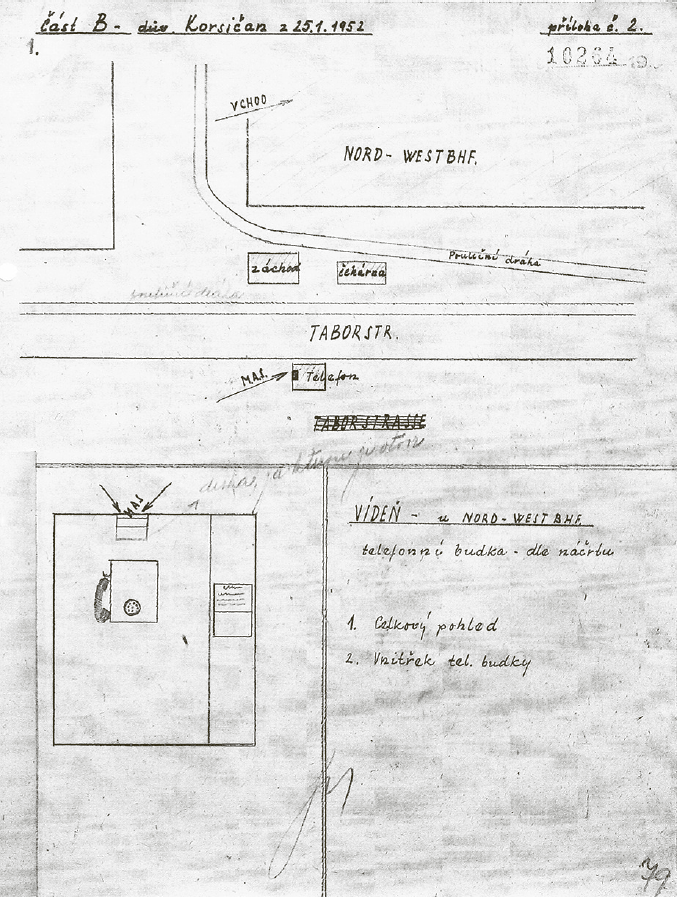 část B - dův. Korsičan z 25.1.1952
příloha č. 2.
1.
10264
VCHOD
NORD-WESTBHF.
Pouliční dráha
záchod
čekárna
TABORSTR.
MAS.
Telefon
TABORSTRASSE
MAS
VÍDEŇ - u NORD-WESTBHF.
telefonní budka - dle náčrtu
1. Celkový pohled
2. Vnitřek tel. budky
79